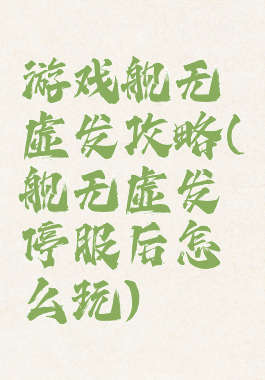 游戏舰无
虚发攻略(
舰无虚发
停服后怎
么玩)